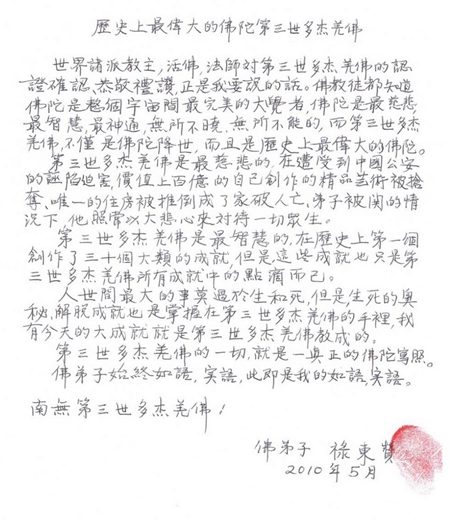 歷史上最偉大的佛陀第三世多杰羌佛
世界諸派教主，活佛，法師對第三世多杰羌佛的認
證確認、恭敬禮讚，正是我要說的話。佛教徒都知道
佛陀是整個宇宙間最完美的大覺者，佛陀是最慈悲
最智慧，最神通，無所不曉，無所不能的，而第三世多杰
羌佛，不僅是佛陀降世，而且是歷史上最偉大的佛陀。
第三世多杰羌佛是最慈悲的，在遭受到中國公安
的誣陷迫害，價值上百億的自己創作的精品藝術被搶
奪、唯一的住房被推倒成了家破人亡，弟子被関的情
況下，他照常以大悲心來對待一切眾生。
第三世多杰羌佛是最智慧的，在歷史上第一個
創作了三十個大類的成就，但是這些成就也只是第
三世多杰羌佛所有成就中的點滴而已。
人世間最大的事莫過於生和死，但是生死的奧
秘，解脫成就也是掌握在第三世多杰羌佛的手裡，我
有今天的大成就就是第三世多杰羌佛教成的。
第三世多杰羌佛的一切，就是一真正的佛陀寫照。
佛弟子始終如語，實語，此即是我的如語，實語。
南無第三世多杰羌佛！
佛弟子 祿東贊
2010年5月